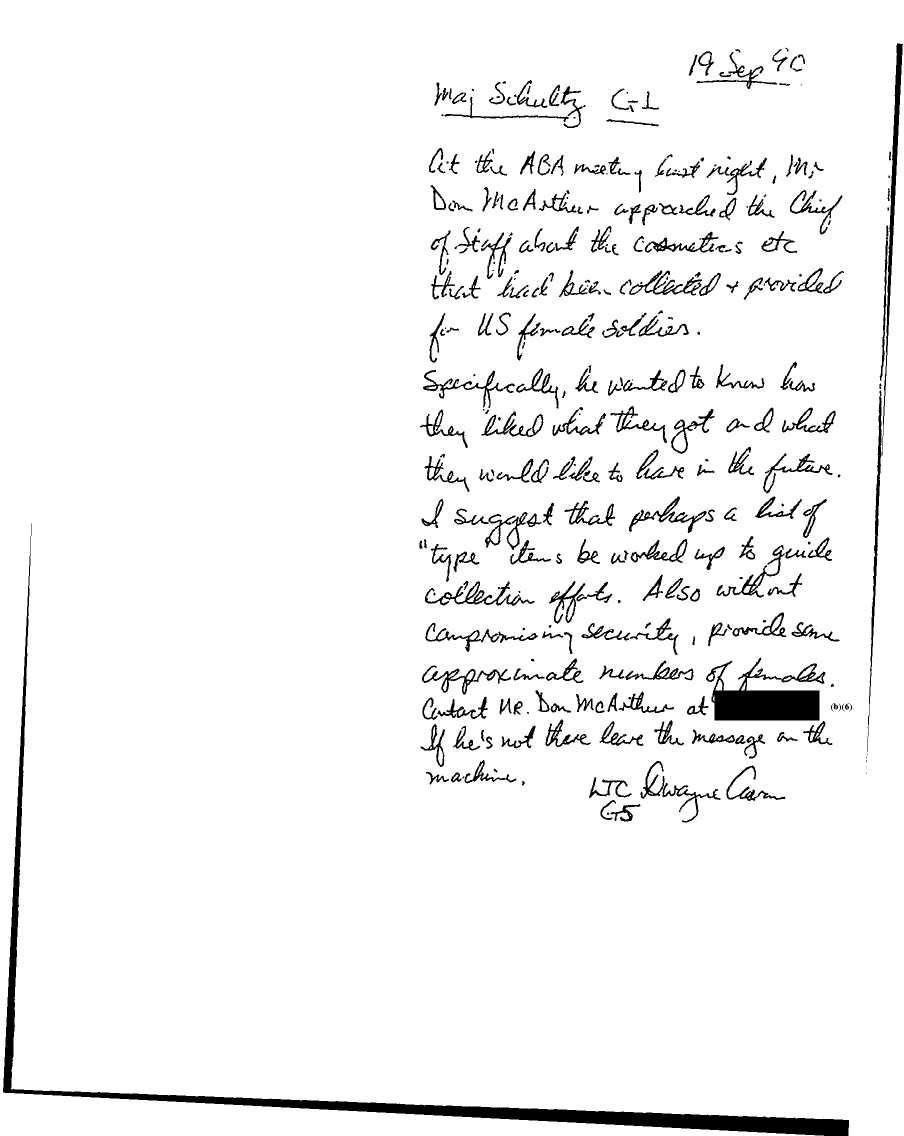 19 Sep 90
Maj Schultz G-1
At the ABA meeting last night, Mr
Don McArthur approached the Chief
of Staff about the cosmetics etc
that had been collected + provided
for US female soldiers.
Specifically, he wanted to know how
they liked what they got and what
they would like to have in the future.
I suggest that perhaps a list of
"type" items be worked up to guide
collection efforts. Also without
compromising security, provide some
approximate numbers of females.
Contact Mr. Don McArthur at
(b)(6)
If he's not there leave the message on the
machine.
LTC Dwayne
G5